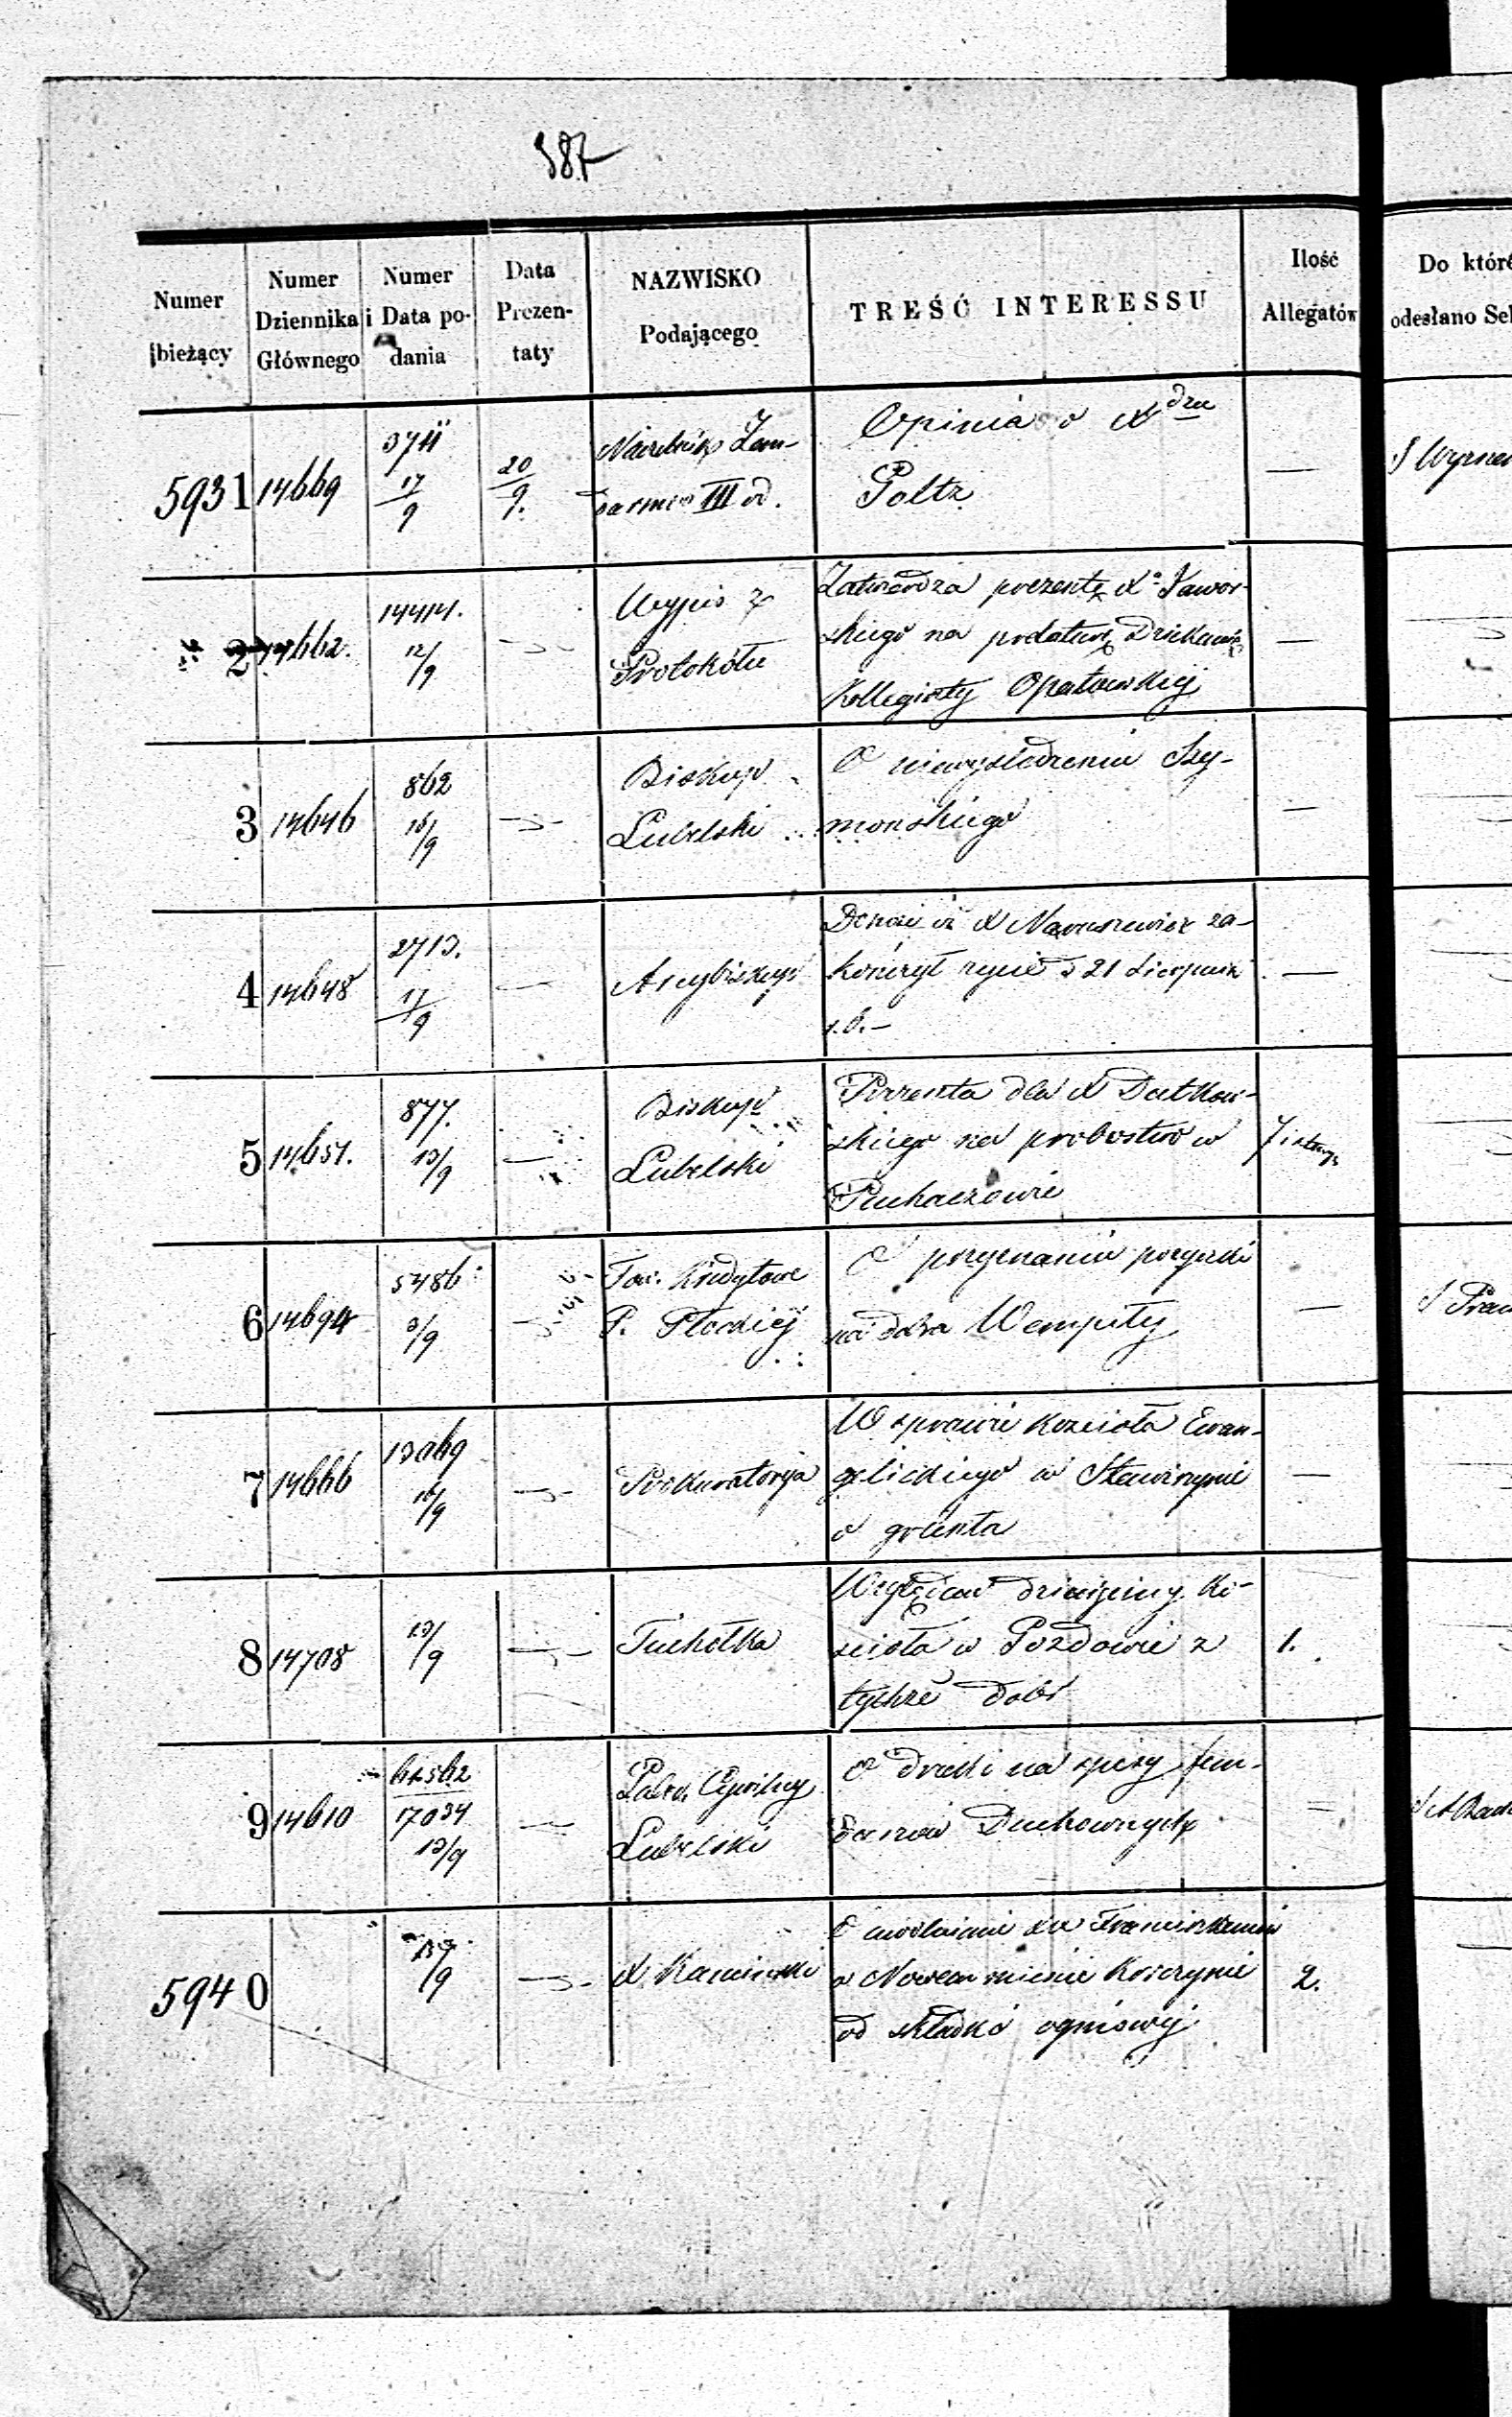 387
Numer bieżący
Numer Dziennika Głównego
Numer i Data podania
Data Prezentaty
NAZWISKO Podającego
TREŚĆ INTERESSU
Ilość Allegatów
Do któré
odesłano Se
5931 14669 17/9 20/9. Naczelnik Żan-
darmów III od.
Opinia o Xdzu
Goltz
—
2 14662. 12/9 Wypis z
Protokółu
Zatwierdza prezentę Xa Jawor-
skiego na
Kollegiaty Opatowskiej
—
3 14646 862 16/9 Biskup
Lubelski
O niewyśledzeniu Szy-
mońskiego
—
4 14648 2713. 17/9 Arcybiskup
Donosi iż X Naruszewicz za-
kończył życie d 21 Sierpnia
r.b.—
—
5 14651. 877. 13/9 Biskup
Lubelski
Prezenta dla X Dutkow-
skiego na probostwo w
Puchaczowie
7 i
6 14694 5486 3/9 Tow. Kredytowe
P. Płockiej
O przyznaniu pożyczki
na dobra Wempiły
—
7 14666 13069 16/9 Prokuratorya
W sprawie kościoła Ewan-
gelickiego w Stawiszynie
o grunta
—
8 14708 13/9 Tuchołka
Względem dziesięciny Ko-
ścioła w Pozdowie z
tychże dóbr
1.
9 14610 17034 13/9 Cywilny
Lubelski
O druki na spisy fun-
duszów Duchownych
5940 19/9 X Kamiński
O uwolnienie XX Franciszkanów
w Nowem mieście Korczynie
od składki ogniowej
2.